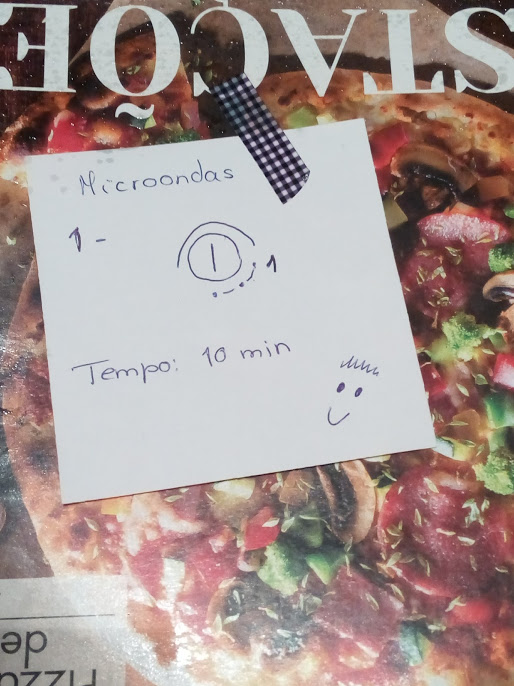 STAÇÕE
Microondas
1-
1
Tempo: 10 min
Pizza
de